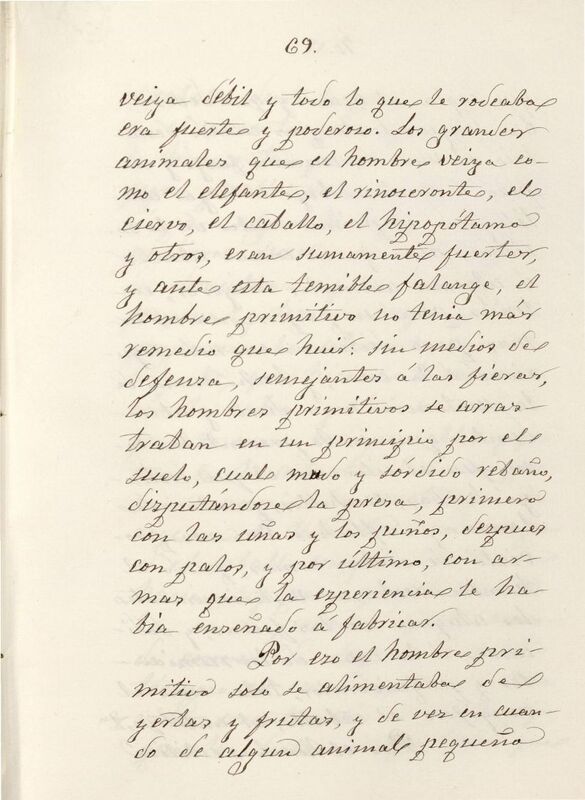 69.
veiya débil y todo lo que le rodeaba
era fuerte y poderoso. Los grandes
animales que el hombre veiya co-
mo el elefante, el rinoseronte, el
ciervo, el caballo, el hipopótamo
y otros, eran sumamente fuertes,
y ante esta temible falange, el
hombre primitivo no tenia más
remedio que huir: sin medios de
defenza, semejantes á las fieras,
los hombres primitivos se arras-
traban en un principio por el
suelo, cual mudo y sórdido rebaño,
dizputándose la presa, primero
con las uñas y los puños, dezpues
con palos, y por último, con ar-
mas que la ezperiencia le ha-
bía enseñado á fabricar.
Por ezo el hombre pri-
mitivo solo se alimentaba de
yerbas y frutas, y de vez en cuan-
do de algun animal pequeño